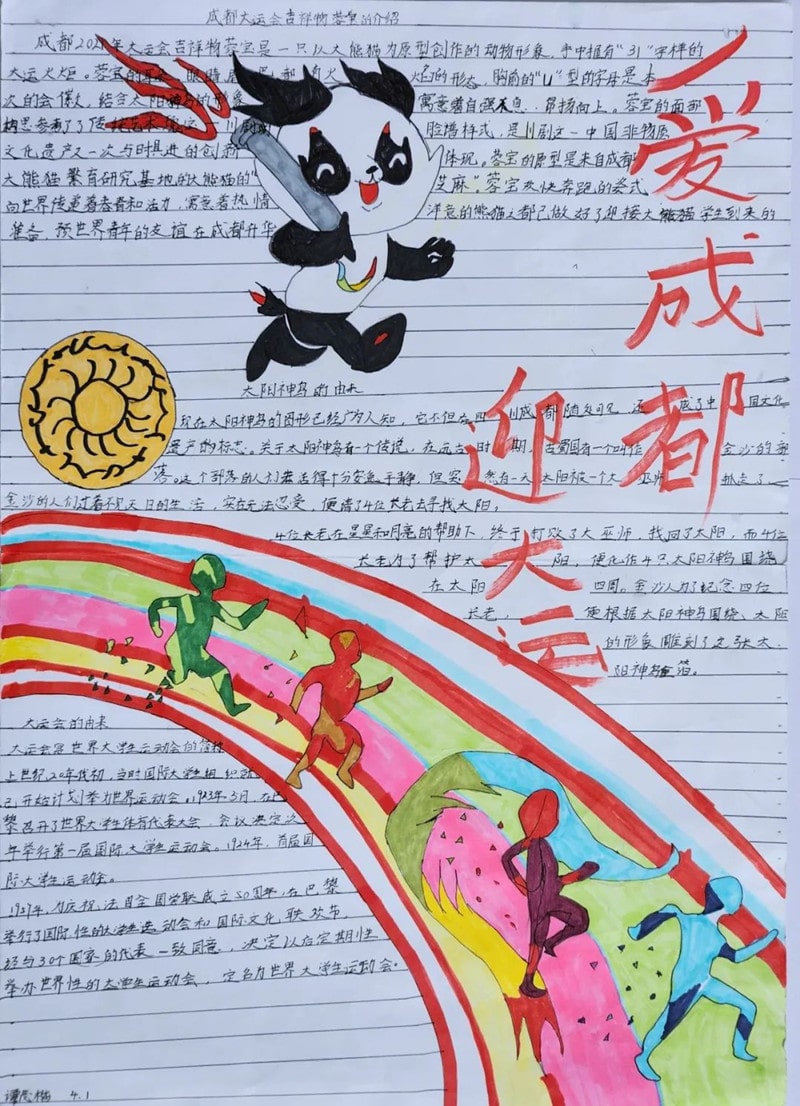 成都大运会吉祥物蓉宝的介绍
成都2021年大运会吉祥物蓉宝是一只以大熊猫为原型创作的动物形象,手中握有“31”字样的
大运火炬。蓉宝的耳朵、眼睛、尾巴都 火焰的形态,胸前的“U”型的字母是本
次的会徽,结合太阳神鸟的形象 寓意着自强不息、昂扬向上。蓉宝的面部
构思参考了 脸谱样式,是川剧这一中国非物质
文化遗产又一次与时俱进的创新 体现。蓉宝的原型是来自成都
大熊猫繁育研究基地的大熊猫的“ 芝麻”蓉宝欢快奔跑的姿式
向世界传递着青春和活力,寓意着热情 洋意的熊猫之都已做好了迎接大熊猫学生到来的
准备,预世界青年的友谊在成都升华
爱成都
迎大运
太阳神鸟的由来
现在太阳神鸟的图形已经广为人知,它不但在四川成都随处可见,还 成了中国文化
遗产的标志。关于太阳神鸟有一个传说,在远古时期,古蜀国有一个叫作 金沙的部
落。这个部落的人们生活得十分安逸于静,但突然有一天太阳被一个大巫师 抓走了,
金沙的人们过着不见天日的生活,实在无法忍受,便请了4位长老去寻找太阳。
4位长老在星星和月亮的帮助下,终于打败了大巫师,找回了太阳,而4位
长老为了帮护太 阳,便化作4只太阳神鸟围绕
在太阳 四周。金沙人为了纪念四位
长老, 便根据太阳神鸟围绕太阳
的形象雕刻了这张太
阳神鸟金箔。
大运会的由来
大运会是世界大学生运动会的简称
上世纪20年代初,当时国际大学生组织就
已开始计划举办世界运动会。1923年3月,在巴
黎召开了世界大学生体育代表大会,会议决定次
年举行第一届国际大学生运动会。1924年,首届国
际大学生运动会。
1957年,为庆祝法国全国学联成立50周年,在巴黎
举行了国际性的大学生运动会和国际文化联欢节,
经与30个国家的代表一致同意,决定以后定期性
举办世界性的大学生运动会,定名为世界大学生运动会。
4.1